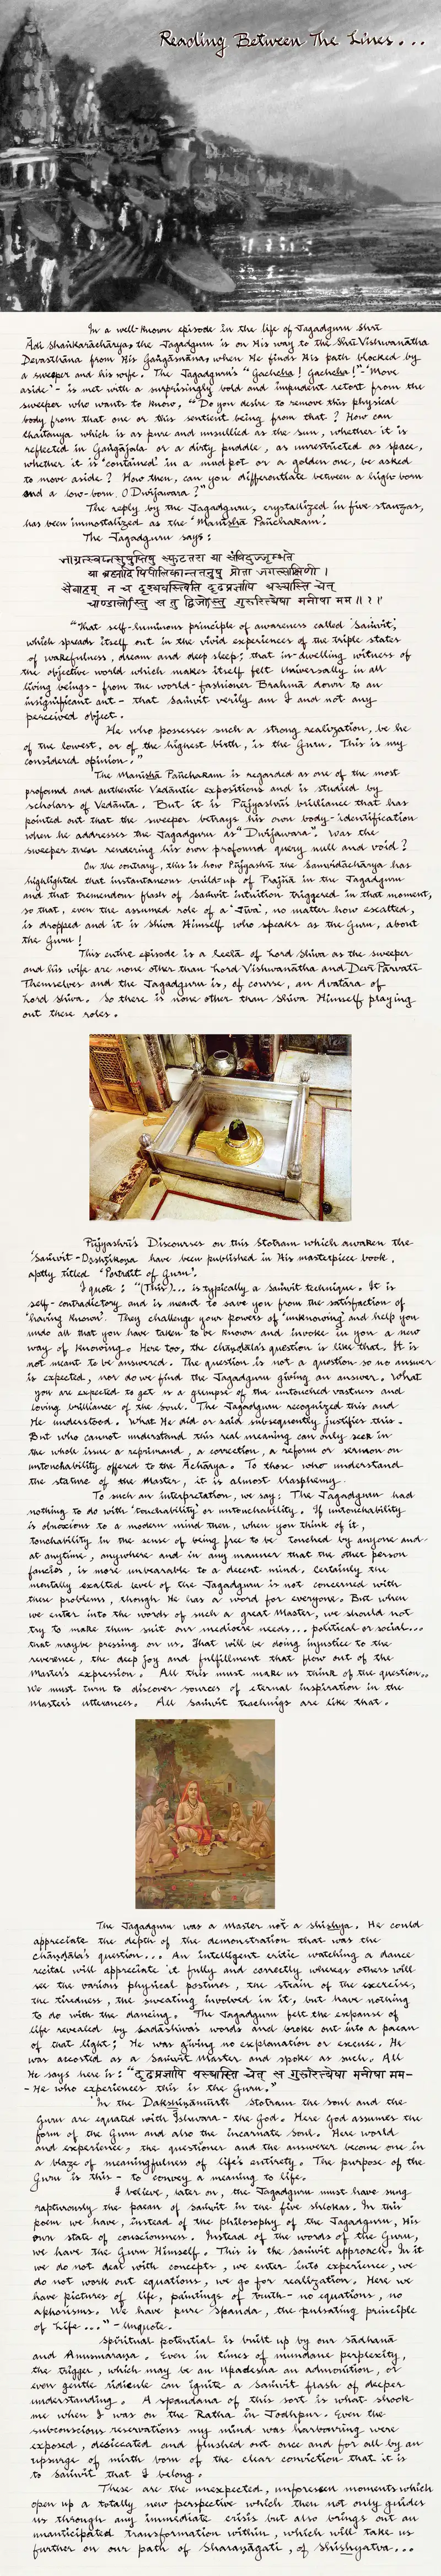 Reading Between The Lines...
In a well-known episode in the life of Jagadguru Shrī
Ādi Shaṅkarāchārya, the Jagadguru is on His way to the Shrī Vishwanātha
Devasthāna from His Gaṅgāsnāna, when He finds His path blocked by
a sweeper and his wife. The Jagadguru's "Gachcha! Gachcha!" - 'Move
aside' - is met with a surprisingly bold and impudent retort from the
sweeper who wants to know, "Do you desire to remove this physical
body from that one or this sentient being from that? How can
Chaitanya which is as pure and unsullied as the sun, whether it is
reflected in Gaṅgājala or a dirty puddle, as unrestricted as space,
whether it is 'contained' in a mud pot or a golden one, be asked
to move aside? How then, can you differentiate between a high born
and a low-born, O Dwijawara?"
The reply by the Jagadguru, crystallized in five stanzas,
has been immortalized as the 'Manīshā Pañchakam'.
The Jagadguru says:
जाग्रत्स्वप्नसुषुप्तिषु स्फुटतरा या संविदुज्जृम्भते
या ब्रह्मादिपिपीलिकान्ततनुषु प्रोता जगत्साक्षिणी ।
सैवाहम् न च दृश्यवस्त्विति दृढप्रज्ञापि यस्यास्ति चेत्
चाण्डालोऽस्तु स तु द्विजोऽस्तु गुरुरित्येषा मनीषा मम ॥ १ ॥
"That self-luminous principle of awareness called 'Saṁvit',
which spreads itself out in the vivid experiences of the triple states
of wakefulness, dream and deep sleep; that in-dwelling witness of
the objective world which makes itself felt Universally in all
living beings - from the world-fashioner Brahmā down to an
insignificant ant - that Saṁvit verily am I and not any
perceived object.
He who possesses such a strong realization, be he
of the lowest, or of the highest birth, is the Guru. This is my
considered opinion."
The Manīshā Pañchakam is regarded as one of the most
profound and authentic Vedāntic expositions and is studied by
scholars of Vedānta. But it is Pūjyashrī's brilliance that has
pointed out that the sweeper betrays his own body-identification
when he addresses the Jagadguru as "Dwijawara". Was the
sweeper then rendering his own profound query null and void?
On the contrary, this is how Pūjyashrī the Samvidāchārya has
highlighted that instantaneous build-up of Prajñā in the Jagadguru
and that tremendous flash of Saṁvit intuition triggered in that moment,
so that, even the assumed role of a 'Jīva', no matter how exalted,
is dropped and it is Shiva Himself who speaks as the Guru, about
the Guru!
This entire episode is a Leelā of Lord Shiva as the sweeper
and his wife are none other than Lord Vishwanātha and Devī Pārvatī
Themselves and the Jagadguru is, of course, an Avatāra of
Lord Shiva. So there is none other than Shiva Himself playing
out these roles.
Pūjyashrī's Discourses on this Stotram which awaken the
'Saṁvit-Dṛshṭikoṇa' have been published in His masterpiece book,
aptly titled 'Portrait of Guru'.
I quote: "(This)... is typically a Saṁvit technique. It is
self-contradictory and is meant to save you from the satisfaction of
'having known'. They challenge your powers of 'unknowing' and help you
undo all that you have taken to be known and invoke in you a new
way of knowing. Here too, the chaṇḍāla's question is like that. It is
not meant to be answered. The question is not a question so no answer
is expected, nor do we find the Jagadguru giving an answer. What
you are expected to get is a glimpse of the untouched vastness and
loving brilliance of the soul. The Jagadguru recognized this and
He understood. What He did or said subsequently justifies this.
But who cannot understand this real meaning can only seek in
the whole issue a reprimand, a correction, a reform or sermon on
untouchability offered to the Āchārya. To those who understand
the stature of the Master, it is almost blasphemy.
To such an interpretation, we say: The Jagadguru had
nothing to do with 'touchability' or untouchability. If untouchability
is obnoxious to a modern mind then, when you think of it,
touchability in the sense of being free to be touched by anyone and
at anytime, anywhere and in any manner that the other person
fancies, is more unbearable to a decent mind. Certainly the
mentally exalted level of the Jagadguru is not concerned with
these problems, though He has a word for everyone. But when
we enter into the words of such a great Master, we should not
try to make them suit our mediocre needs... political or social...
that maybe pressing on us. That will be doing injustice to the
reverence, the deep joy and fulfillment that flow out of the
Master's expression. All this must make us think of the question..
We must turn to discover sources of eternal inspiration in the
Master's utterances. All Saṁvit teachings are like that.
The Jagadguru was a Master not a shishya. He could
appreciate the depth of the demonstration that was the
chāṇḍāla's question... An intelligent critic watching a dance
recital will appreciate it fully and correctly whereas others will
see the various physical postures, the strain of the exercise,
the tiredness, the sweating involved in it, but have nothing
to do with the dancing. The Jagadguru felt the expanse of
life revealed by Sadāshiva's words and broke out into a paean
of that light; He was giving no explanation or excuse. He
was accosted as a Saṁvit Master and spoke as such. All
He says here is: "दृढप्रज्ञापि यस्यास्ति चेत् स गुरुरित्येषा मनीषा मम-
- He who experiences this is the Guru."
'In the Dakshiṇāmūrti Stotram the soul and the
Guru are equated with Īshwara - the God. Here God assumes the
form of the Guru and also the incarnate soul. Here world
and experience, the questioner and the answerer become one in
a blaze of meaningfulness of life's entirety. The purpose of the
Guru is this - to convey a meaning to life.
I believe, later on, the Jagadguru must have sung
rapturously the paean of Saṁvit in the five shlokas. In this
poem we have, instead of the philosophy of the Jagadguru, His
own state of consciousness. Instead of the words of the Guru,
we have the Guru Himself. This is the Saṁvit approach. In it
we do not deal with concepts, we enter into experience, we
do not work out equations, we go for realization. Here we
have pictures of life, paintings of truth - no equations, no
aphorisms. We have pure Spanda, the pulsating principle
of Life ..." - Unquote.
Spiritual potential is built up by our sādhanā
and Anusmaraṇa. Even in times of mundane perplexity,
the trigger, which may be an Upadesha an admonition, or
even gentle ridicule can ignite a Saṁvit flash of deeper
understanding. A spandana of this sort is what shook
me when I was on the Ratha in Jodhpur. Even the
subconscious reservations my mind was harbouring were
exposed, desiccated and flushed out once and for all by an
upsurge of mirth born of the clear conviction that it is
to Saṁvit that I belong.
These are the unexpected, unforeseen moments which
open up a totally new perspective which then not only guides
us through any immediate crisis but also brings out an
unanticipated transformation within, which will take us
further on our path of Sharaṇāgati, of Shishyatva...